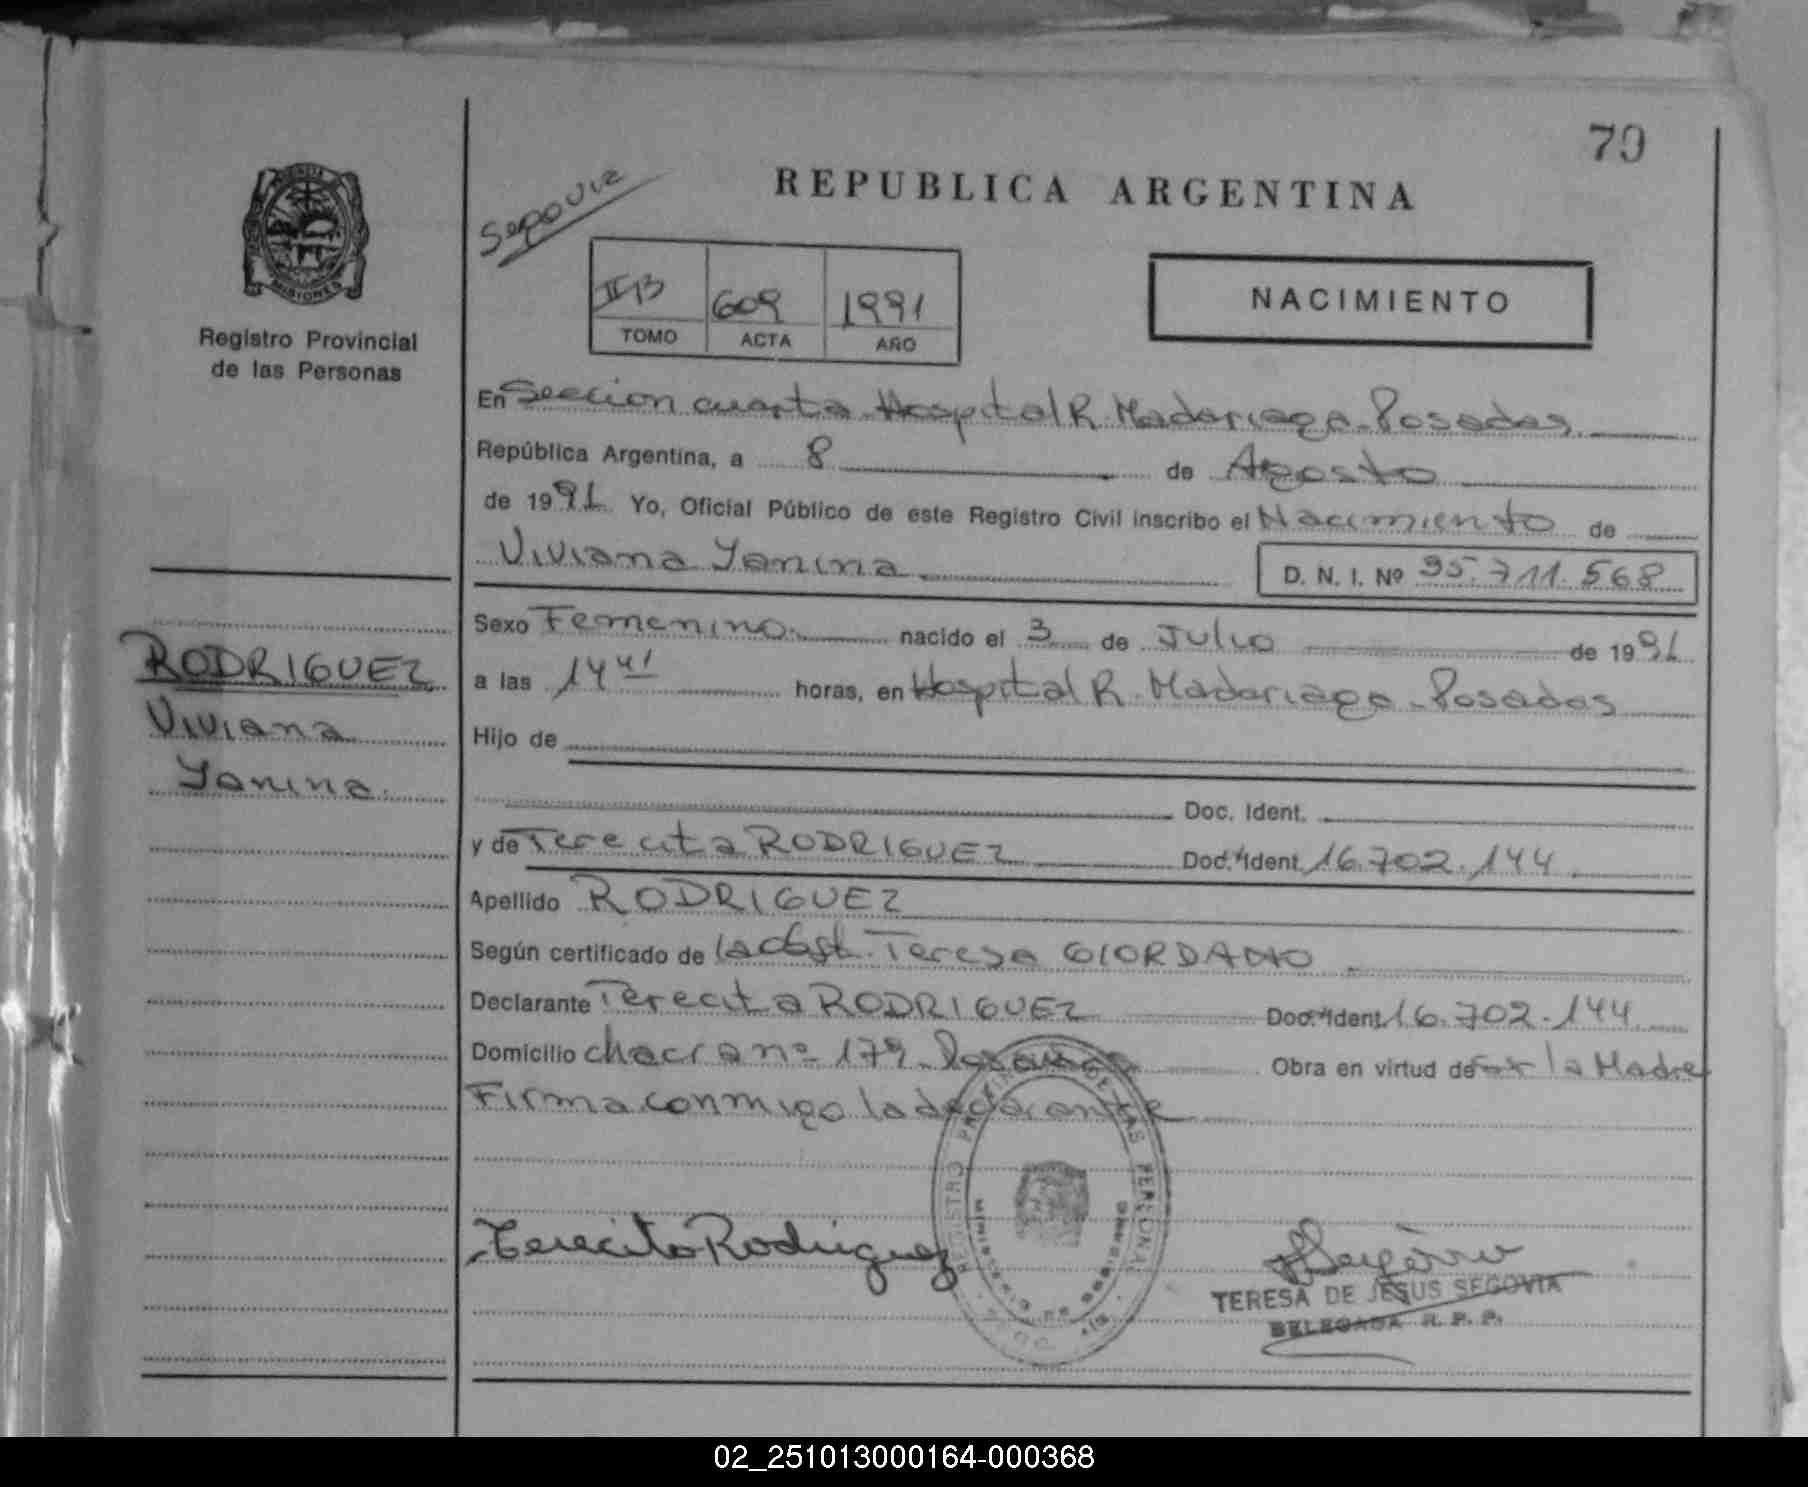 79
Segovia
REPUBLICA ARGENTINA
MISIONES
Registro Provincial
de las Personas
II B 609 1991
TOMO ACTA AÑO
NACIMIENTO
En Seccion cuarta Hospital R. Madariaga - Posadas
República Argentina, a 8 de Agosto
de 1991 Yo, Oficial Público de este Registro Civil inscribo el Nacimiento de
Viviana Yanina D. N. I. Nº 35.711.568
RODRIGUEZ
Viviana
Yanina
Sexo Femenino nacido el 3 de Julio de 1991
a las 14 41 horas, en Hospital R. Madariaga - Posadas
Hijo de
Doc. Ident.
y de Terecita RODRIGUEZ Doc. Ident. 16.702.144
Apellido RODRIGUEZ
Según certificado de la Obst. Teresa GIORDANO
Declarante Terecita RODRIGUEZ Doc. Ident. 16.702.144
Domicilio chacra nº 179 - Posadas Obra en virtud de ser la Madre
Firma conmigo la declarante
Terecita Rodriguez
REGISTRO PROVINCIAL DE LAS PERSONAS
TERESA DE JESUS SEGOVIA
DELEGADA R. P. P.
02_251013000164-000368